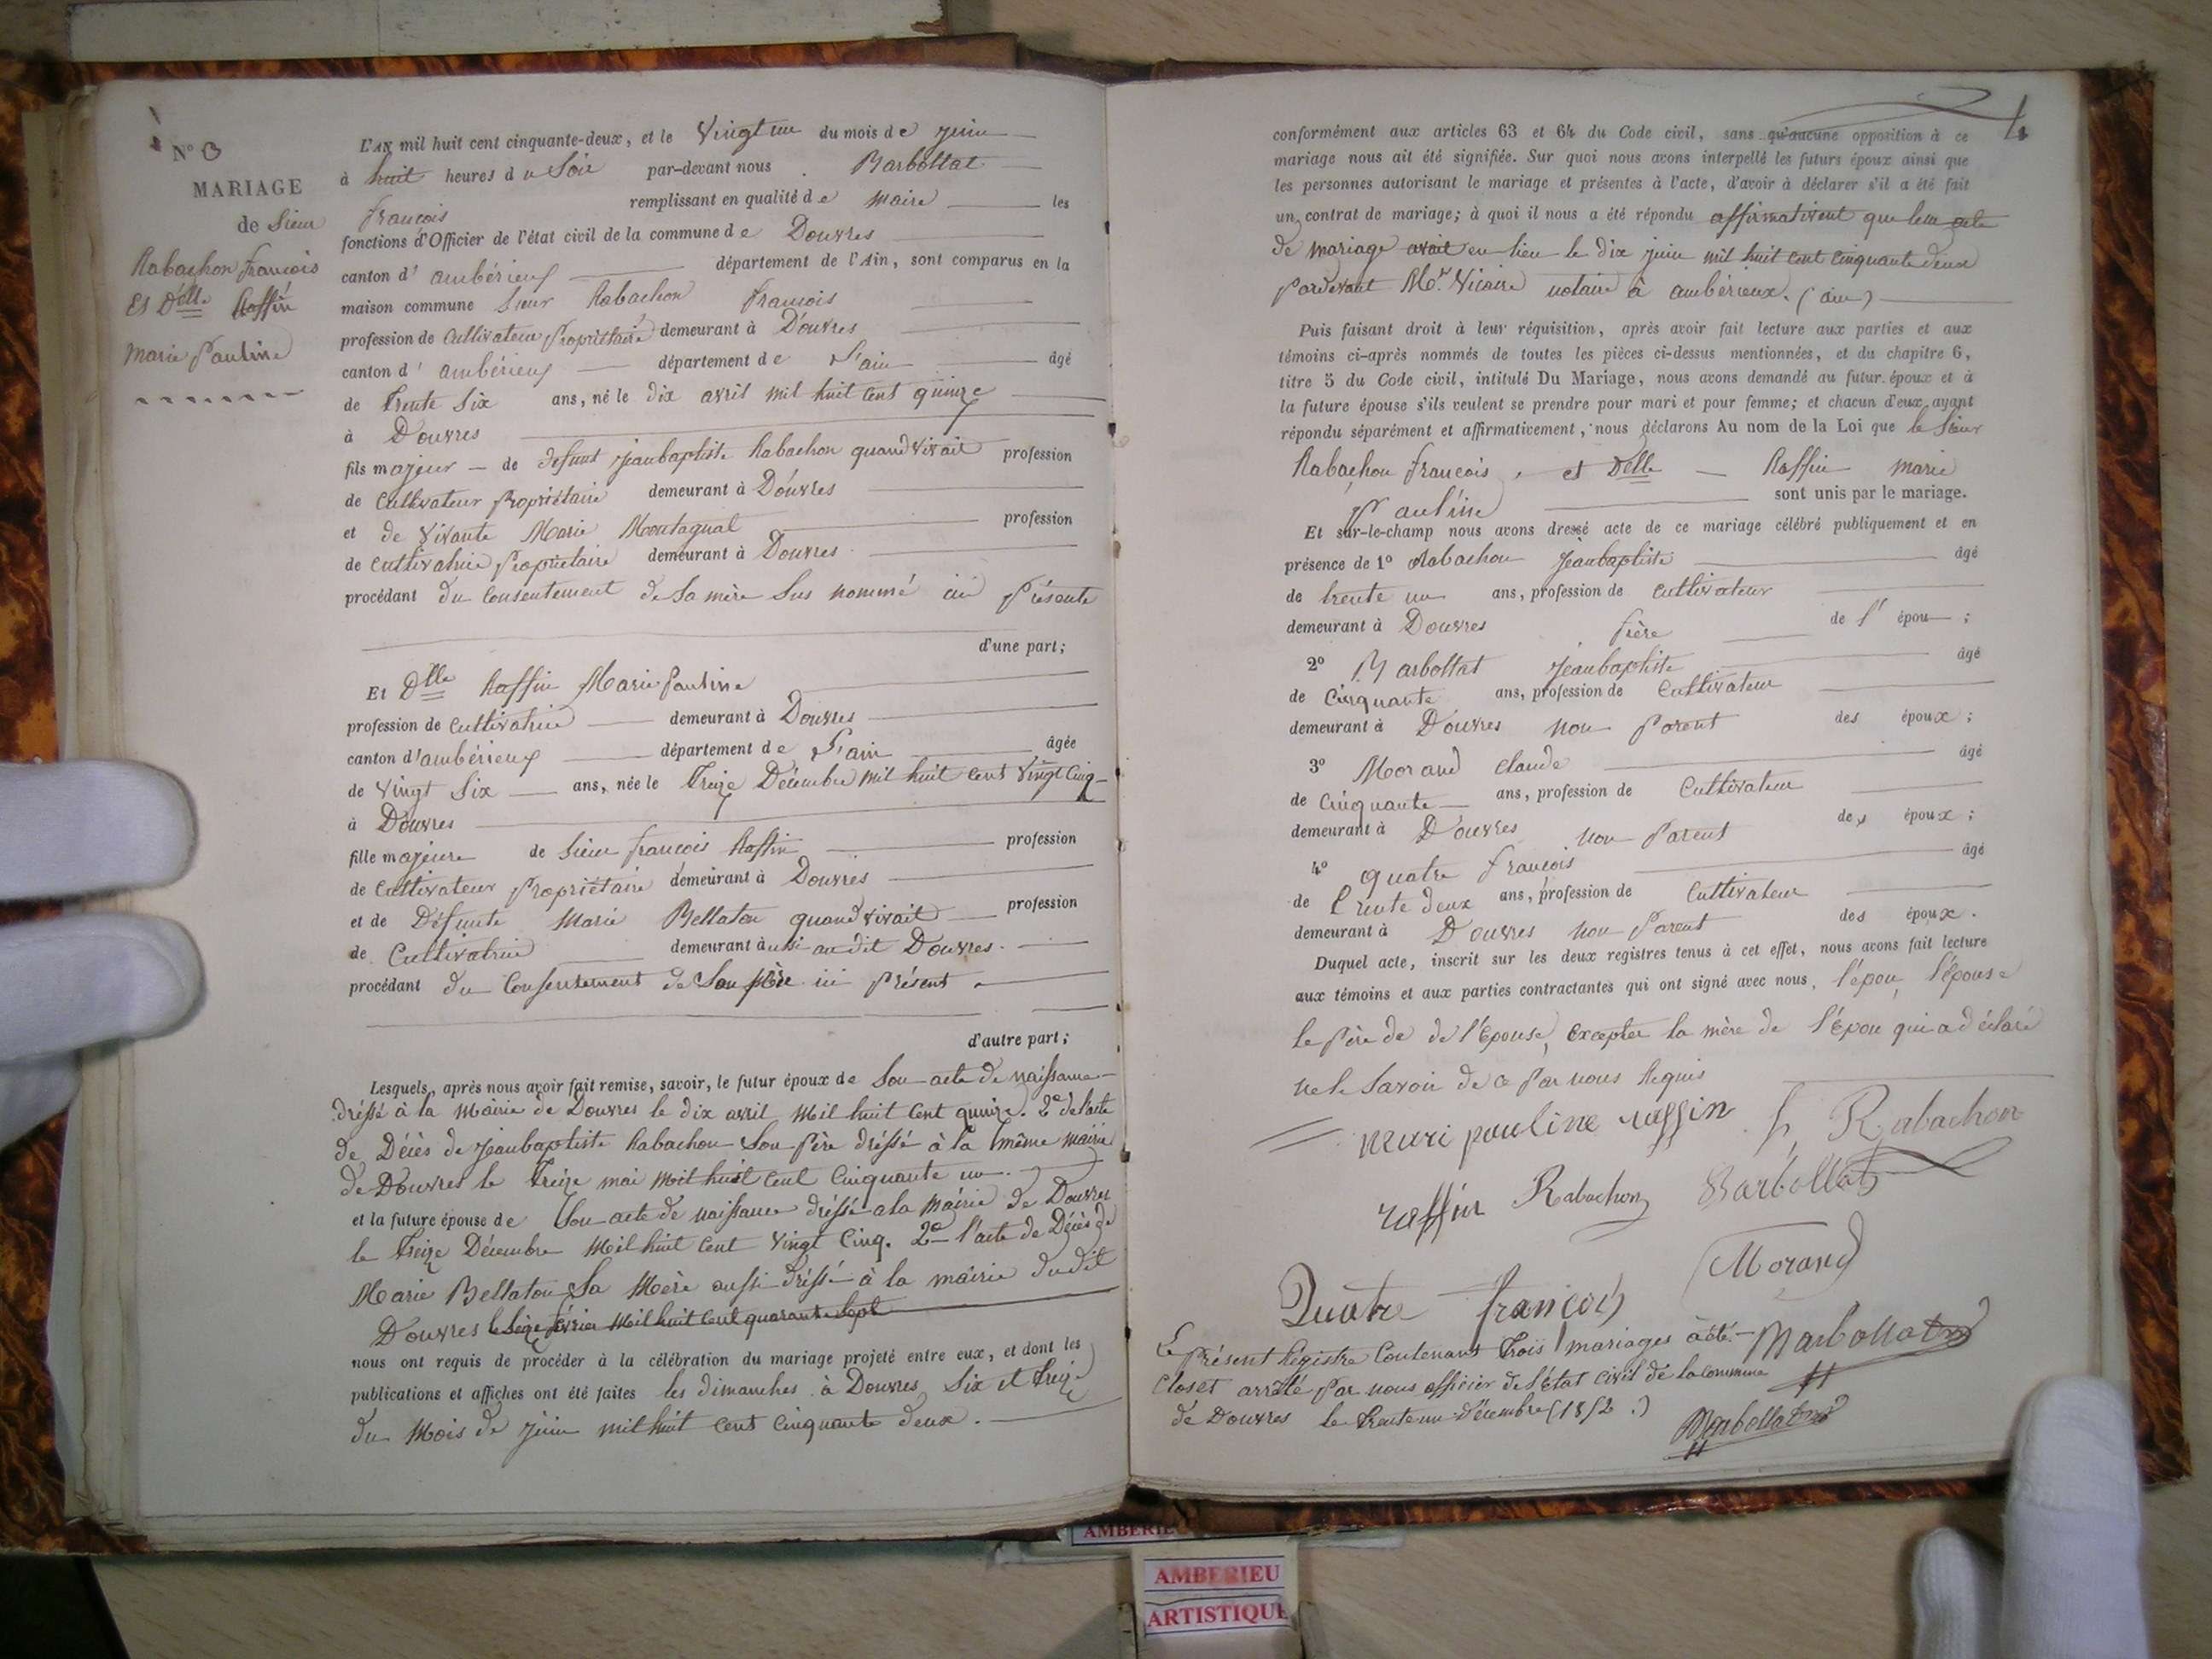 N° 3
MARIAGE
de Sieur
Rabachon françois
Et Dlle Raffin
marie Pauline
L'AN mil huit cent cinquante-deux, et le Vingt un du mois de juin
à huit heures du Soir par-devant nous Barbollat
françois remplissant en qualité de maire les
fonctions d'Officier de l'état civil de la commune de Douvres
canton d'ambérieux département de l'Ain, sont comparus en la
maison commune Sieur Rabachon françois
profession de Cultivateur Propriétaire demeurant à Douvres
canton d'ambérieux département de L'ain âgé
de trente Six ans, né le dix avril mil huit cent quinze
à Douvres
fils majeur de defunt jeanbaptiste Rabachon quand vivait profession
de Cultivateur Propriétaire demeurant à Douvres
et de vivante Marie Montagnat profession
de Cultivatrice Propriétaire demeurant à Douvres
procédant du Consentement de Sa mère Sus nommé ici Présente
d'une part;
Et Dlle Raffin Marie Pauline
profession de Cultivatrice demeurant à Douvres
canton d'ambérieux département de L'ain âgée
de vingt Six ans, née le treize Décembre mil huit cent vingt Cinq
à Douvres
fille majeure de Sieur françois Raffin profession
de Cultivateur Propriétaire demeurant à Douvres
et de Défunte Marie Bellaton quand vivait profession
de Cultivatrice demeurant aussi audit Douvres
procédant du Consentement de Son père ici Présent
d'autre part;
Lesquels, après nous avoir fait remise, savoir, le futur époux de Son acte de naissance
dréssé à la Mairie de Douvres le dix avril Mil huit Cent quinze. 2e de l'acte
de Décès de jeanbaptiste Rabachon Son Père dréssé à la même mairie
de Douvres le treize mai Mil huit Cent Cinquante un
et la future épouse de Son acte de naissance dréssé a la Mairie de Douvres
le treize Décembre Mil huit Cent vingt Cinq. 2e l'acte de Décès de
Marie Bellaton Sa Mère aussi dréssé à la mairie dudit
Douvres le Seize février Mil huit Cent quarante Sept
nous ont requis de procéder à la célébration du mariage projeté entre eux, et dont les
publications et affiches ont été faites les dimanches à Douvres Six et treize
du Mois de juin mil huit cent Cinquante deux.
4
conformément aux articles 63 et 64 du Code civil, sans qu'aucune opposition à ce
mariage nous ait été signifiée. Sur quoi nous avons interpellé les futurs époux ainsi que
les personnes autorisant le mariage et présentes à l'acte, d'avoir à déclarer s'il a été fait
un contrat de mariage; à quoi il nous a été répondu affirmativent que leur acte
de mariage avait eu lieu le dix juin mil huit cent cinquante deux
Pardevant Mr. Vicaire notaire à ambérieux. (ain)
Puis faisant droit à leur réquisition, après avoir fait lecture aux parties et aux
témoins ci-après nommés de toutes les pièces ci-dessus mentionnées, et du chapitre 6,
titre 5 du Code civil, intitulé Du Mariage, nous avons demandé au futur époux et à
la future épouse s'ils veulent se prendre pour mari et pour femme; et chacun d'eux ayant
répondu séparément et affirmativement, nous déclarons Au nom de la Loi que le Sieur
Rabachon françois et Dlle Raffin marie
Pauline sont unis par le mariage.
Et sur-le-champ nous avons dressé acte de ce mariage célébré publiquement et en
présence de 1° Rabachon Jeanbaptiste âgé
de trente un ans, profession de Cultivateur
demeurant à Douvres frère de l'épou ;
2° Barbollat Jeanbaptiste âgé
de Cinquante ans, profession de Cultivateur
demeurant à Douvres non Parent des époux ;
3° Morand Claude âgé
de Cinquante ans, profession de Cultivateur
demeurant à Douvres non Parent des époux ;
4° quatre françois âgé
de trente deux ans, profession de Cultivateur
demeurant à Douvres non Parent des époux.
Duquel acte, inscrit sur les deux registres tenus à cet effet, nous avons fait lecture
aux témoins et aux parties contractantes qui ont signé avec nous, l'épou, l'épouse
le Père de de l'Epouse, Excepter la mère de l'Epou qui a déclaré
ne le Savoir de ce Par nous Requis
mari pauline raffin f, Rabachon
raffin Rabachon Barbollat
Morand
Quatre françois
Le Présent Régistre Contenant trois mariages à été Barbollat
Clos et arrêté Par nous officier de l'état civil de la commune
de Douvres le trente un Décembre (1852.)
Barbollat
AMBERIEU
AMBERIEU
ARTISTIQUE